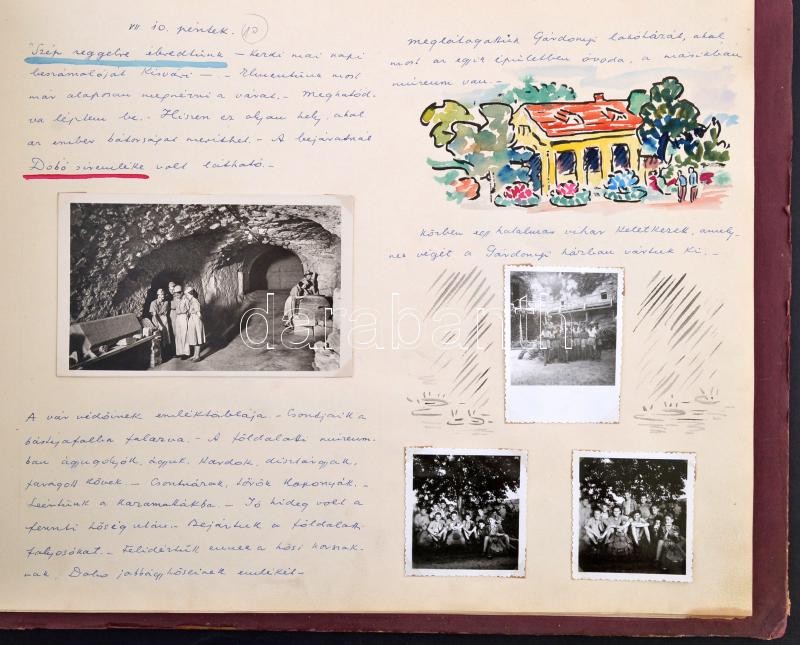 VII 10. péntek. 10
"Szép reggelre ébredtünk – kezdi mai napi
beszámolóját Kisvási –. – Elmentünk most
már alaposan megnézni a várat. – Meghatód-
va léptem be. – Hiszen ez olyan hely, ahol
az ember bátorságot meríthet. – A bejáratnál
Dobó síremléke volt látható. –
A vár védőinek emléktáblája. – Csontjaik a
bástyafalba falazva. – A földalatti múzeum-
ban ágyúgolyók, ágyúk, kardok, dísztárgyak,
faragott kövek. – Csontvázak, török koponyák. –
Leértünk a kazamatákba. – Jó hideg volt a
fennti hőség után. – Bejártuk a földalatti
folyosókat. – Felidéztük ennek a hősi kornak-
nak, Dobo jobbágyhőseinek emlékét –
meglátogattuk Gárdonyi lakóházát, ahol
most az egyik épületben óvoda, a másikban
múzeum van. –
közben egy hatalmas vihar keletkezek, amely-
nek végét a Gárdonyi házban vártuk ki. –
darabanth